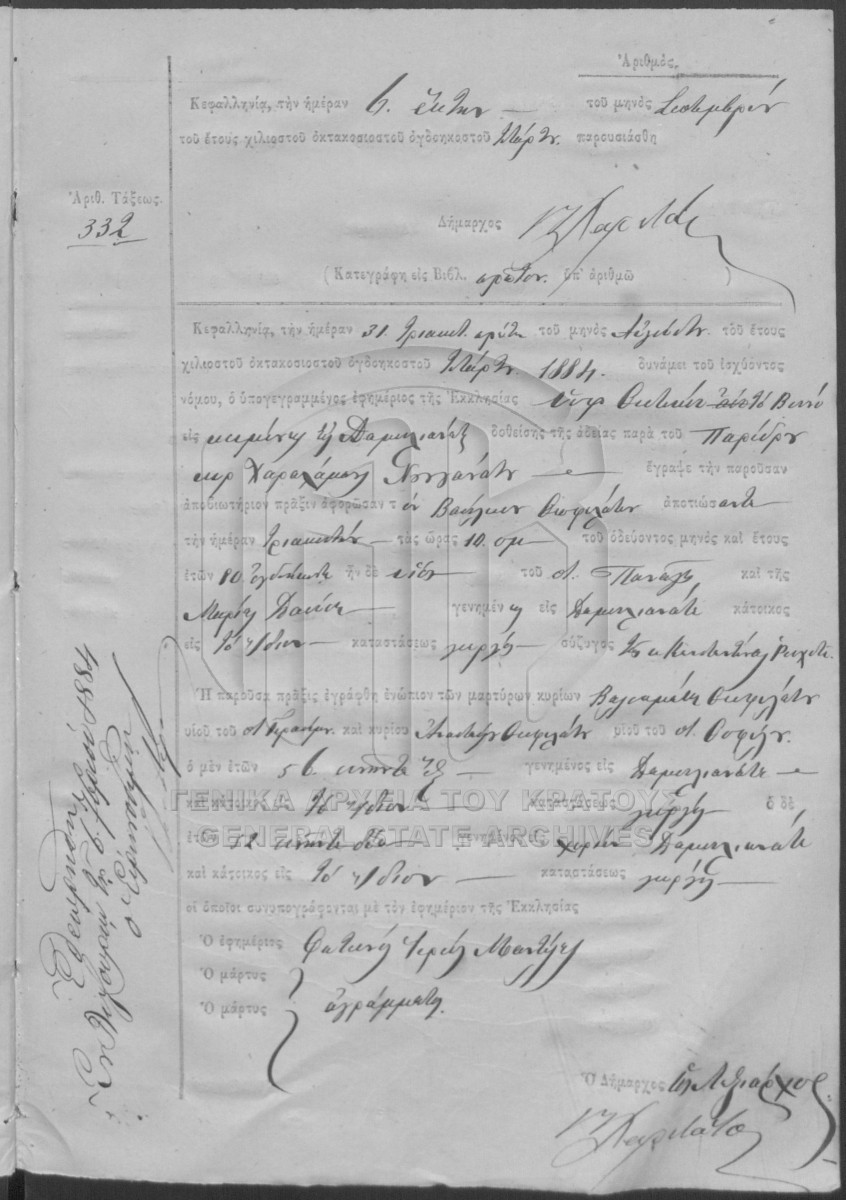 Ἀριθμὸς
Κεφαλληνίᾳ, τὴν ἡμέραν 6. ἕκτην τοῦ μηνὸς Σεπτεμβρίου
τοῦ ἔτους χιλιοστοῦ ὀκτακοσιοστοῦ ὀγδοηκοστοῦ τετάρτου παρουσιάσθη
Ἀριθ. Τάξεως.
332
Δήμαρχος
(Κατεγράφη εἰς Βιβλ. πρῶτον. ὑπ' ἀριθμῶ )
Κεφαλληνίᾳ, τὴν ἡμέραν 31. τριακοστ. πρώτη τοῦ μηνὸς Αὐγούστου τοῦ ἔτους
χιλιοστοῦ ὀκτακοσιοστοῦ ὀγδοηκοστοῦ τετάρτου 1884. δυνάμει τοῦ ἰσχύοντος
νόμου, ὁ ὑπογεγραμμένος ἐφημέριος τῆς Ἐκκλησίας
εἰς Δαμουλιανάτα δοθείσης τῆς ἀδείας παρὰ τοῦ Παρέδρου
κυρ Χαραλάμπη ἔγραψε τὴν παροῦσαν
ἀποβιωτήριον πρᾶξιν ἀφορῶσαν τ όν Βασίλειον Θεοφιλάτον ἀποβιώσαντα
τὴν ἡμέραν τριακοστήν τὰς ὥρας 10. πμ τοῦ ὁδεύοντος μηνὸς καὶ ἔτους
ἐτῶν 80 ὀγδοήκοντα ἦν δὲ υἱός τοῦ π. Παναγῆ καὶ τῆς
Μαρίας γενημέν ος εἰς Δαμουλιανάτα κάτοικος
εἰς τὸ ἴδιον καταστάσεως γεωργός σύζυγος
Ἡ παροῦσα πρᾶξις ἐγράφη ἐνώπιον τῶν μαρτύρων κυρίων Βαλσαμάκη Θεοφιλάτου
υἱοῦ τοῦ π. Γερασίμου καὶ κυρίου Ἀναστάση Θεοφιλάτου υἱοῦ τοῦ π.
ὁ μὲν ἐτῶν 56 πενήντα ἕξ γενημένος εἰς Δαμουλιανάτα
καὶ κάτοικος εἰς τὸ ἴδιον καταστάσεως γεωργός ὁ δὲ
ἐτῶν 52 πενήντα δύο γενημένος χωρίον Δαμουλιανάτα
καὶ κάτοικος εἰς τὸ ἴδιον καταστάσεως γεωργός
οἱ ὁποῖοι συνυπογράφονται μὲ τὸν ἐφημέριον τῆς Ἐκκλησίας
Ὁ ἐφημέριος Φωτεινός ἱερεύς
Ὁ μάρτυς
Ὁ μάρτυς ἀγράμματοι
Ὁ Δήμαρχος ὡς Ληξίαρχος
Ἐθεωρήθη
Ἐν Ληξουρίῳ 1884
ὁ Εἰρηνοδίκης
ΓΕΝΙΚΑ ΑΡΧΕΙΑ ΤΟΥ ΚΡΑΤΟΥΣ
GENERAL STATE ARCHIVES